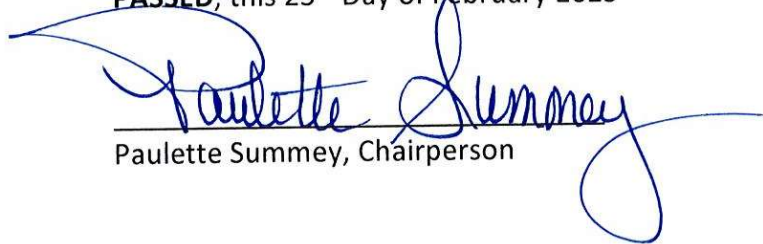 PASSED, this Day of February
Paulette Summey
Paulette Summey, Chairperson